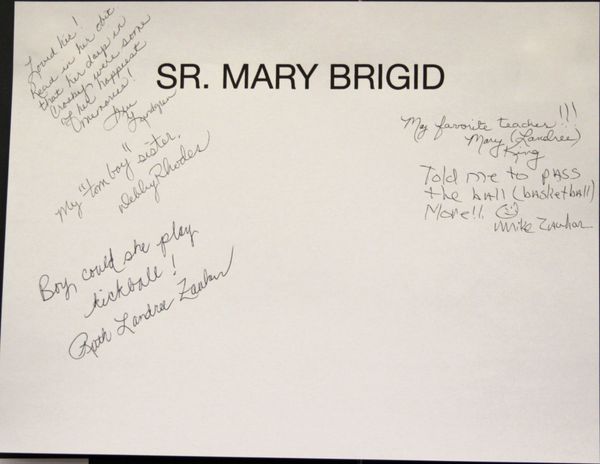 SR. MARY BRIGID
Loved her!
Read in her obit
that her days in
Crosby were some
of her happiest
memories!
Lundgren
My "tom boy" sister.
Debby Rhodes
Boy, could she play
kickball!
Ruth Landree Zauhar
My favorite teacher!!!
Mary (Landree)
King
Told me to PASS
the ball (basketball)
More!!
Mike Zauhar